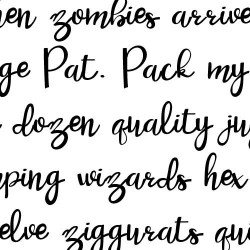 hen zombies arrive
ge Pat. Pack my
dozen quality ju
ping wizards hex
elve ziggurats qu